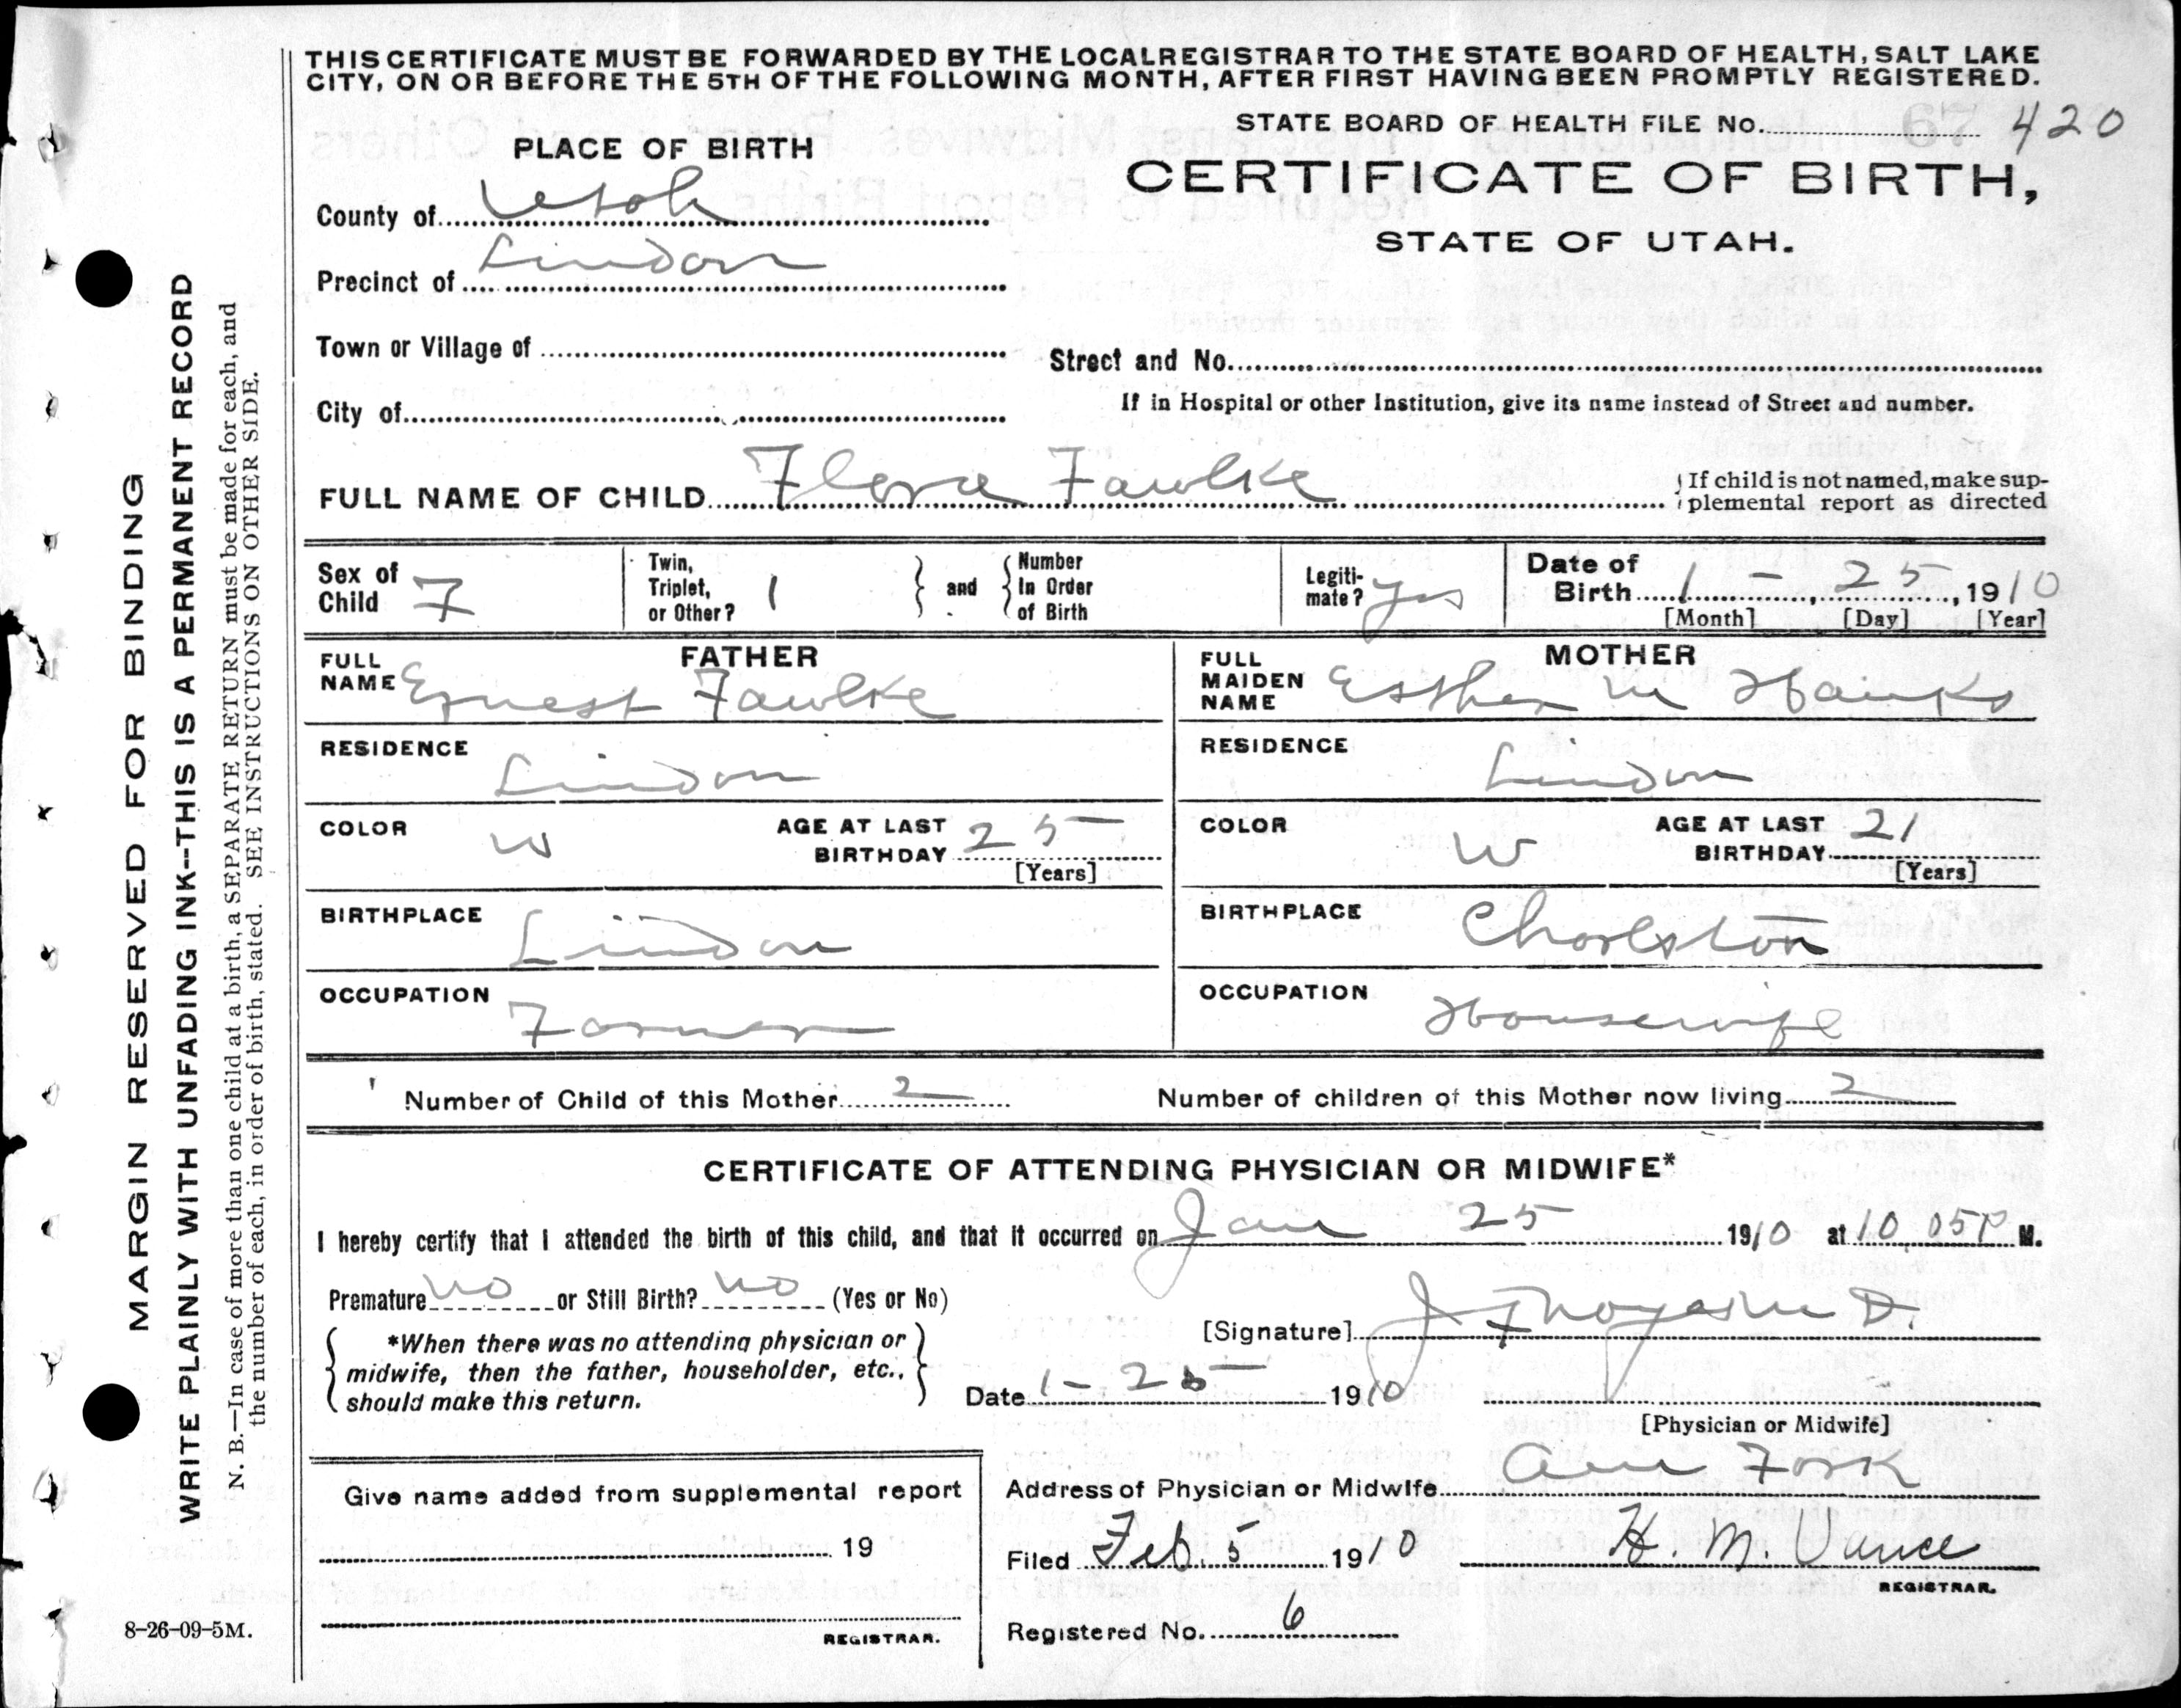 THIS CERTIFICATE MUST BE FORWARDED BY THE LOCAL REGISTRAR TO THE STATE BOARD OF HEALTH, SALT LAKE
CITY, ON OR BEFORE THE 5TH OF THE FOLLOWING MONTH, AFTER FIRST HAVING BEEN PROMPTLY REGISTERED.
STATE BOARD OF HEALTH FILE No. 420
PLACE OF BIRTH
CERTIFICATE OF BIRTH,
STATE OF UTAH.
County of Utah
Precinct of Lindon
Town or Village of
Street and No.
City of
If in Hospital or other Institution, give its name instead of Street and number.
FULL NAME OF CHILD Flora Fawlke
If child is not named, make sup-
plemental report as directed
Sex of Child F
Twin, Triplet, or Other? 1
and
Number In Order of Birth
Legiti-mate? Yes
Date of Birth 1 - 25, 1910
[Month] [Day] [Year]
FATHER
FULL NAME Ernest Fawlke
RESIDENCE Lindon
COLOR W
AGE AT LAST BIRTHDAY 25
[Years]
BIRTHPLACE Lindon
OCCUPATION Farmer
MOTHER
FULL MAIDEN NAME Esther M Hanks
RESIDENCE Lindon
COLOR W
AGE AT LAST BIRTHDAY 21
[Years]
BIRTHPLACE Charlston
OCCUPATION Housewife
Number of Child of this Mother 2
Number of children of this Mother now living 2
CERTIFICATE OF ATTENDING PHYSICIAN OR MIDWIFE*
I hereby certify that I attended the birth of this child, and that it occurred on Jan 25 1910 at 10.05 P M.
Premature no or Still Birth? no (Yes or No)
*When there was no attending physician or
midwife, then the father, householder, etc.,
should make this return.
[Signature]
Date 1-25 1910
[Physician or Midwife]
Address of Physician or Midwife Am Fork
Filed Feb. 5 1910 H. M. Vance
REGISTRAR.
Registered No. 6
Give name added from supplemental report
19
REGISTRAR.
8-26-09-5M.
MARGIN RESERVED FOR BINDING
WRITE PLAINLY WITH UNFADING INK--THIS IS A PERMANENT RECORD
N. B.—In case of more than one child at a birth, a SEPARATE RETURN must be made for each, and
the number of each, in order of birth, stated. SEE INSTRUCTIONS ON OTHER SIDE.